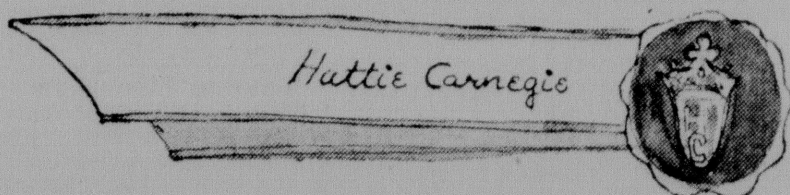 Hattie Carnegie
HC